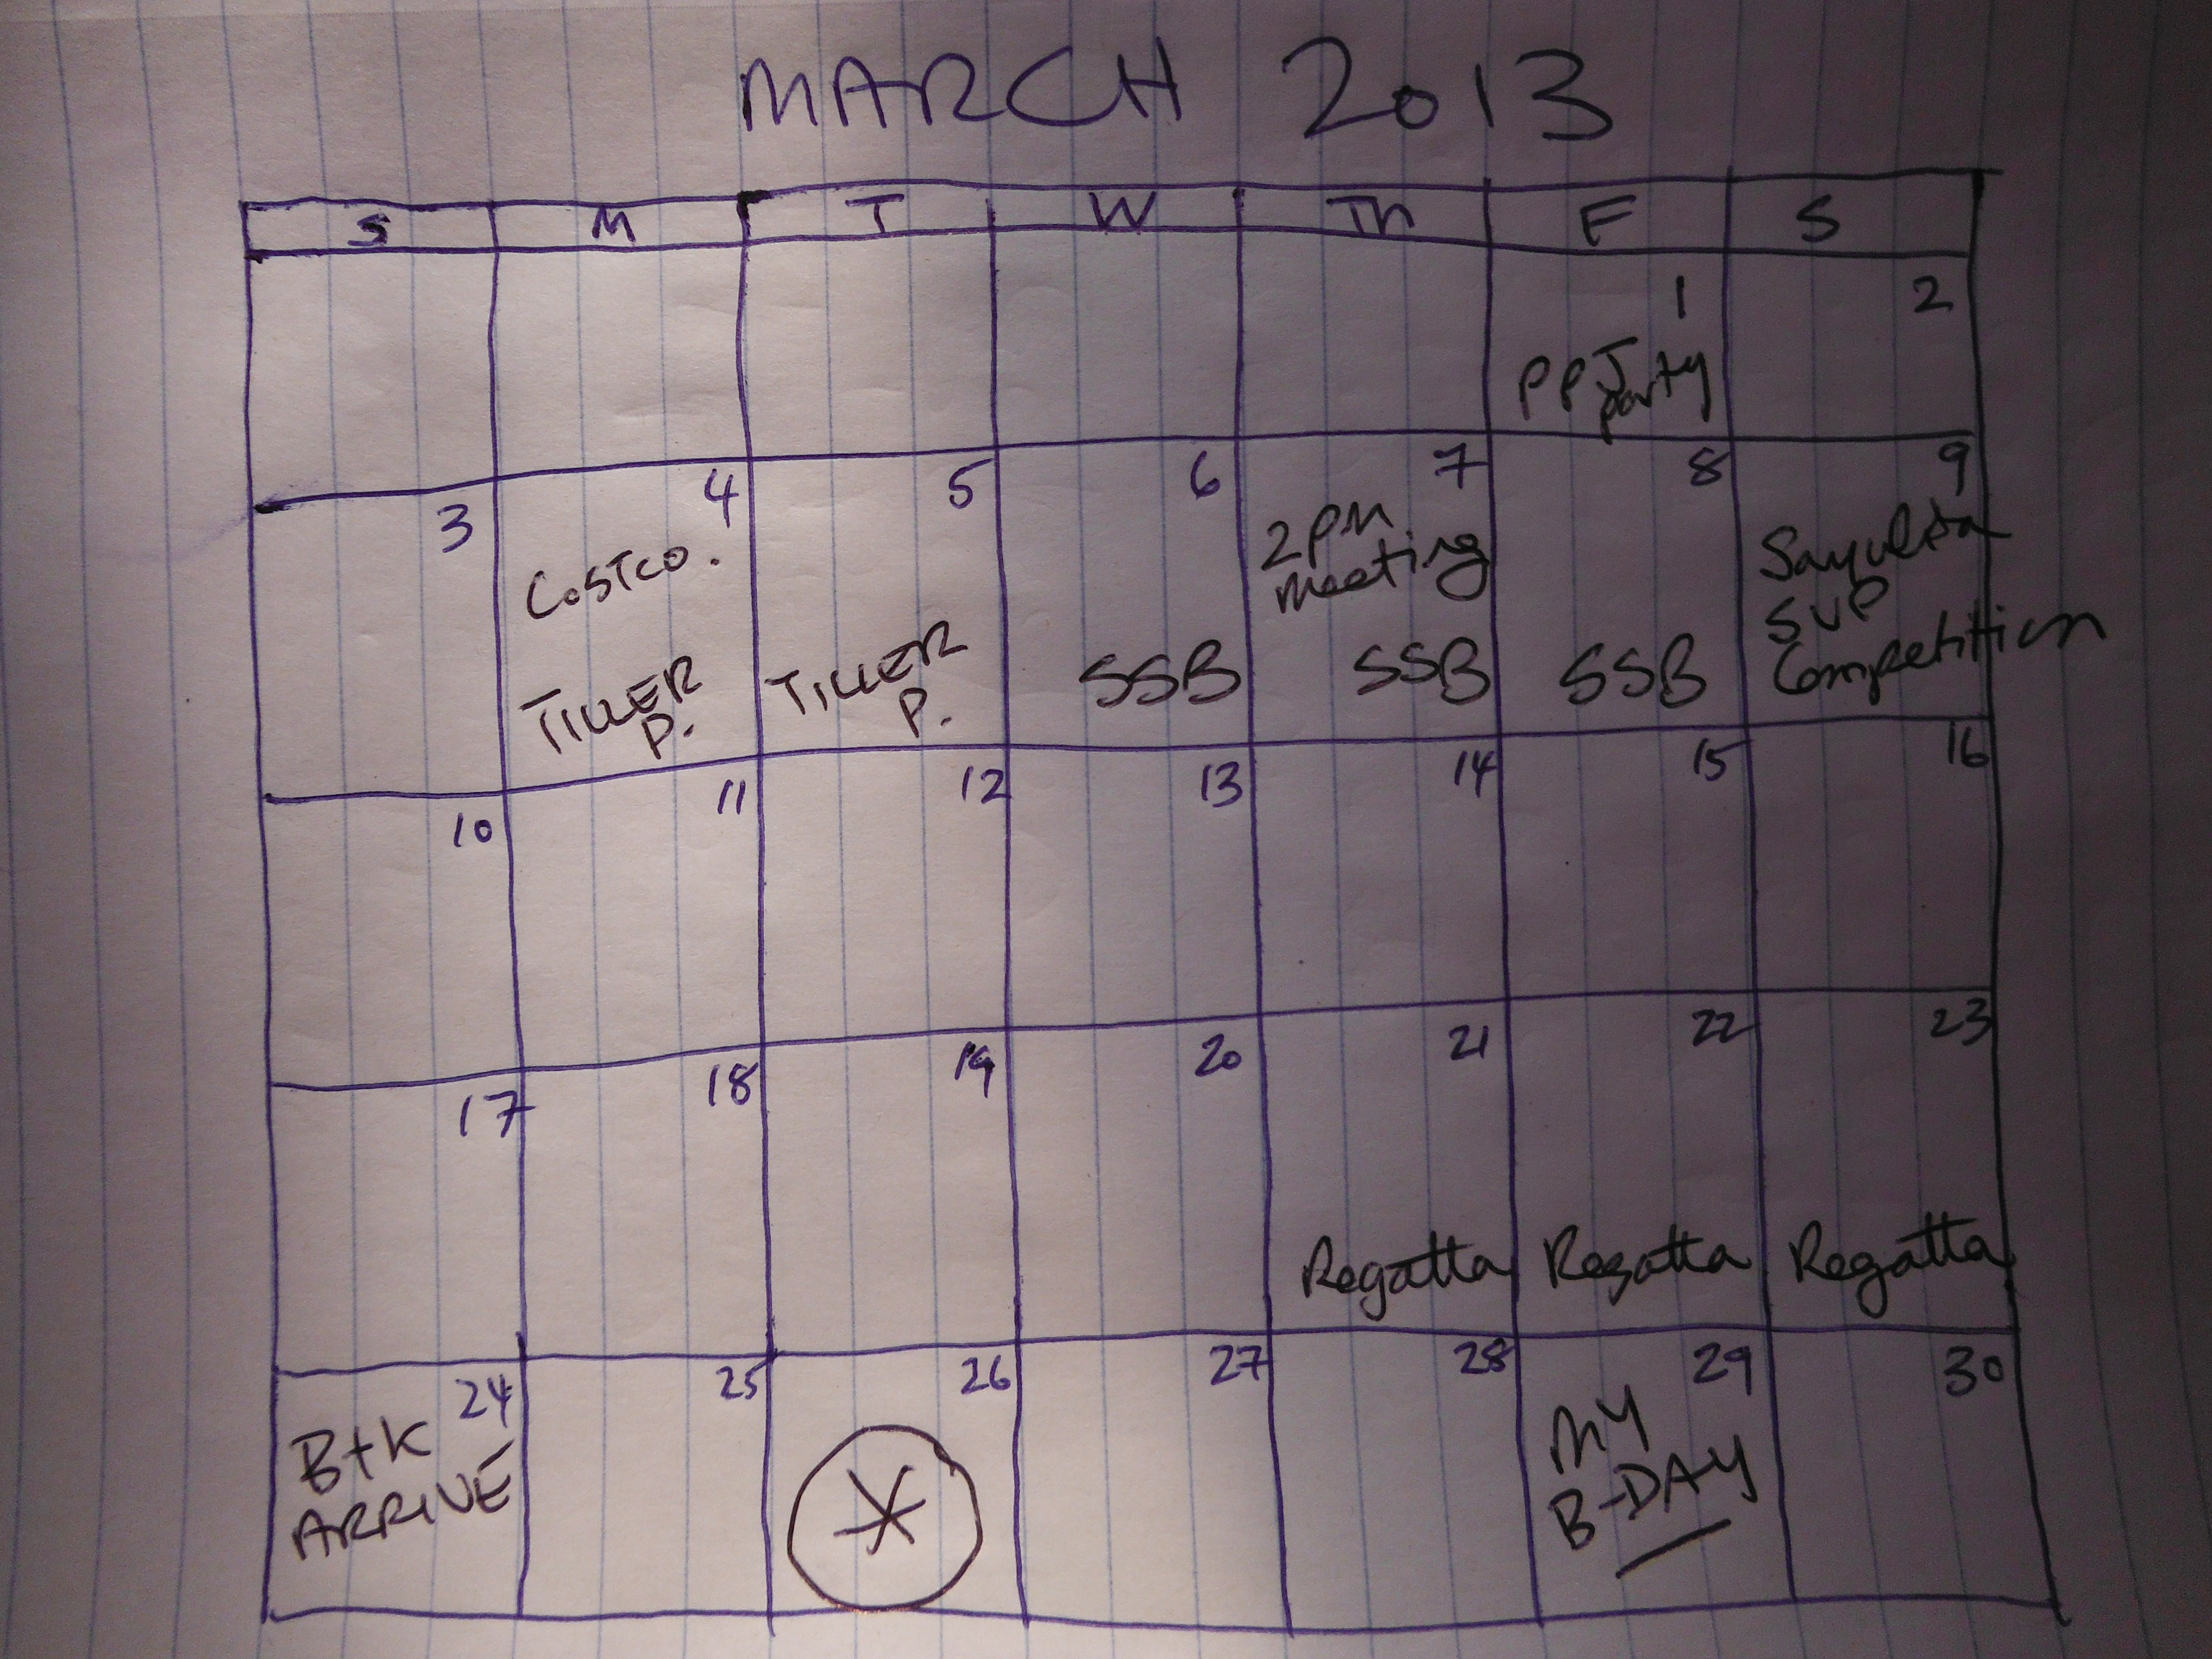 MARCH 2013
S M T W Th F S
1 2
PPJ
party
3 4 5 6 7 8 9
Costco.
TILLER
P.
TILLER
P.
SSB
2pm
meeting
SSB
SSB
Sayulita
SUP
Competition
10 11 12 13 14 15 16
17 18 19 20 21 22 23
Regatta
Regatta
Regatta
24 25 26 27 28 29 30
B+K
ARRIVE
*
MY
B-DAY